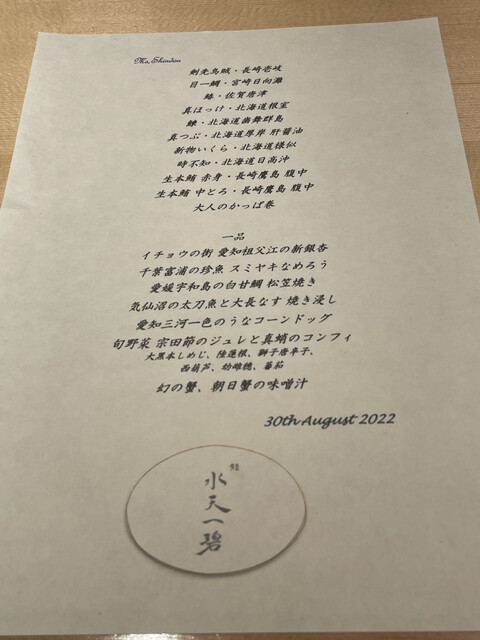 Ms, Shindou
剣先烏賊・長崎壱岐
目一鯛・宮崎日向灘
鯵・佐賀唐津
真ほっけ・北海道根室
鰊・北海道歯舞群島
真つぶ・北海道厚岸 肝醤油
新物いくら・北海道様似
時不知・北海道日高沖
生本鮪 赤身・長崎鷹島 腹中
生本鮪 中とろ・長崎鷹島 腹中
大人のかっぱ巻
一品
イチョウの街 愛知祖父江の新銀杏
千葉富浦の珍魚 スミヤキなめろう
愛媛宇和島の白甘鯛 松笠焼き
気仙沼の太刀魚と大長なす 焼き浸し
愛知三河一色のうなコーンドッグ
旬野菜 宗田節のジュレと真蛸のコンフィ
大黒本しめじ、陸蓮根、獅子唐辛子、
西葫芦、幼雌穂、蕃茄
幻の蟹、朝日蟹の味噌汁
30th August 2022
鮨
水天一碧